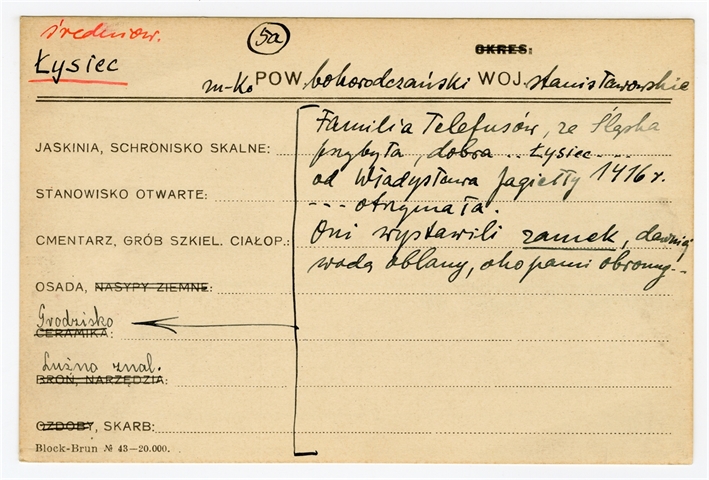 średniow.
5a
OKRES:
Łysiec
m-ko POW. bohorodczański WOJ. stanisławowskie
Familia Telefusów, ze Śląska
JASKINIA, SCHRONISKO SKALNE: przybyła, dobra .. Łysiec ...
od Władysława Jagiełły 1416 r.
STANOWISKO OTWARTE: --- otrzymała.
CMENTARZ, GRÓB SZKIEL. CIAŁOP.: Oni wystawili zamek, dawniej
wodą oblany, okopami obronny...
OSADA, NASYPY ZIEMNE:
Grodzisko
CERAMIKA:
Luźno znal.
BROŃ, NARZĘDZIA:
OZDOBY, SKARB:
Block-Brun № 43—20.000.